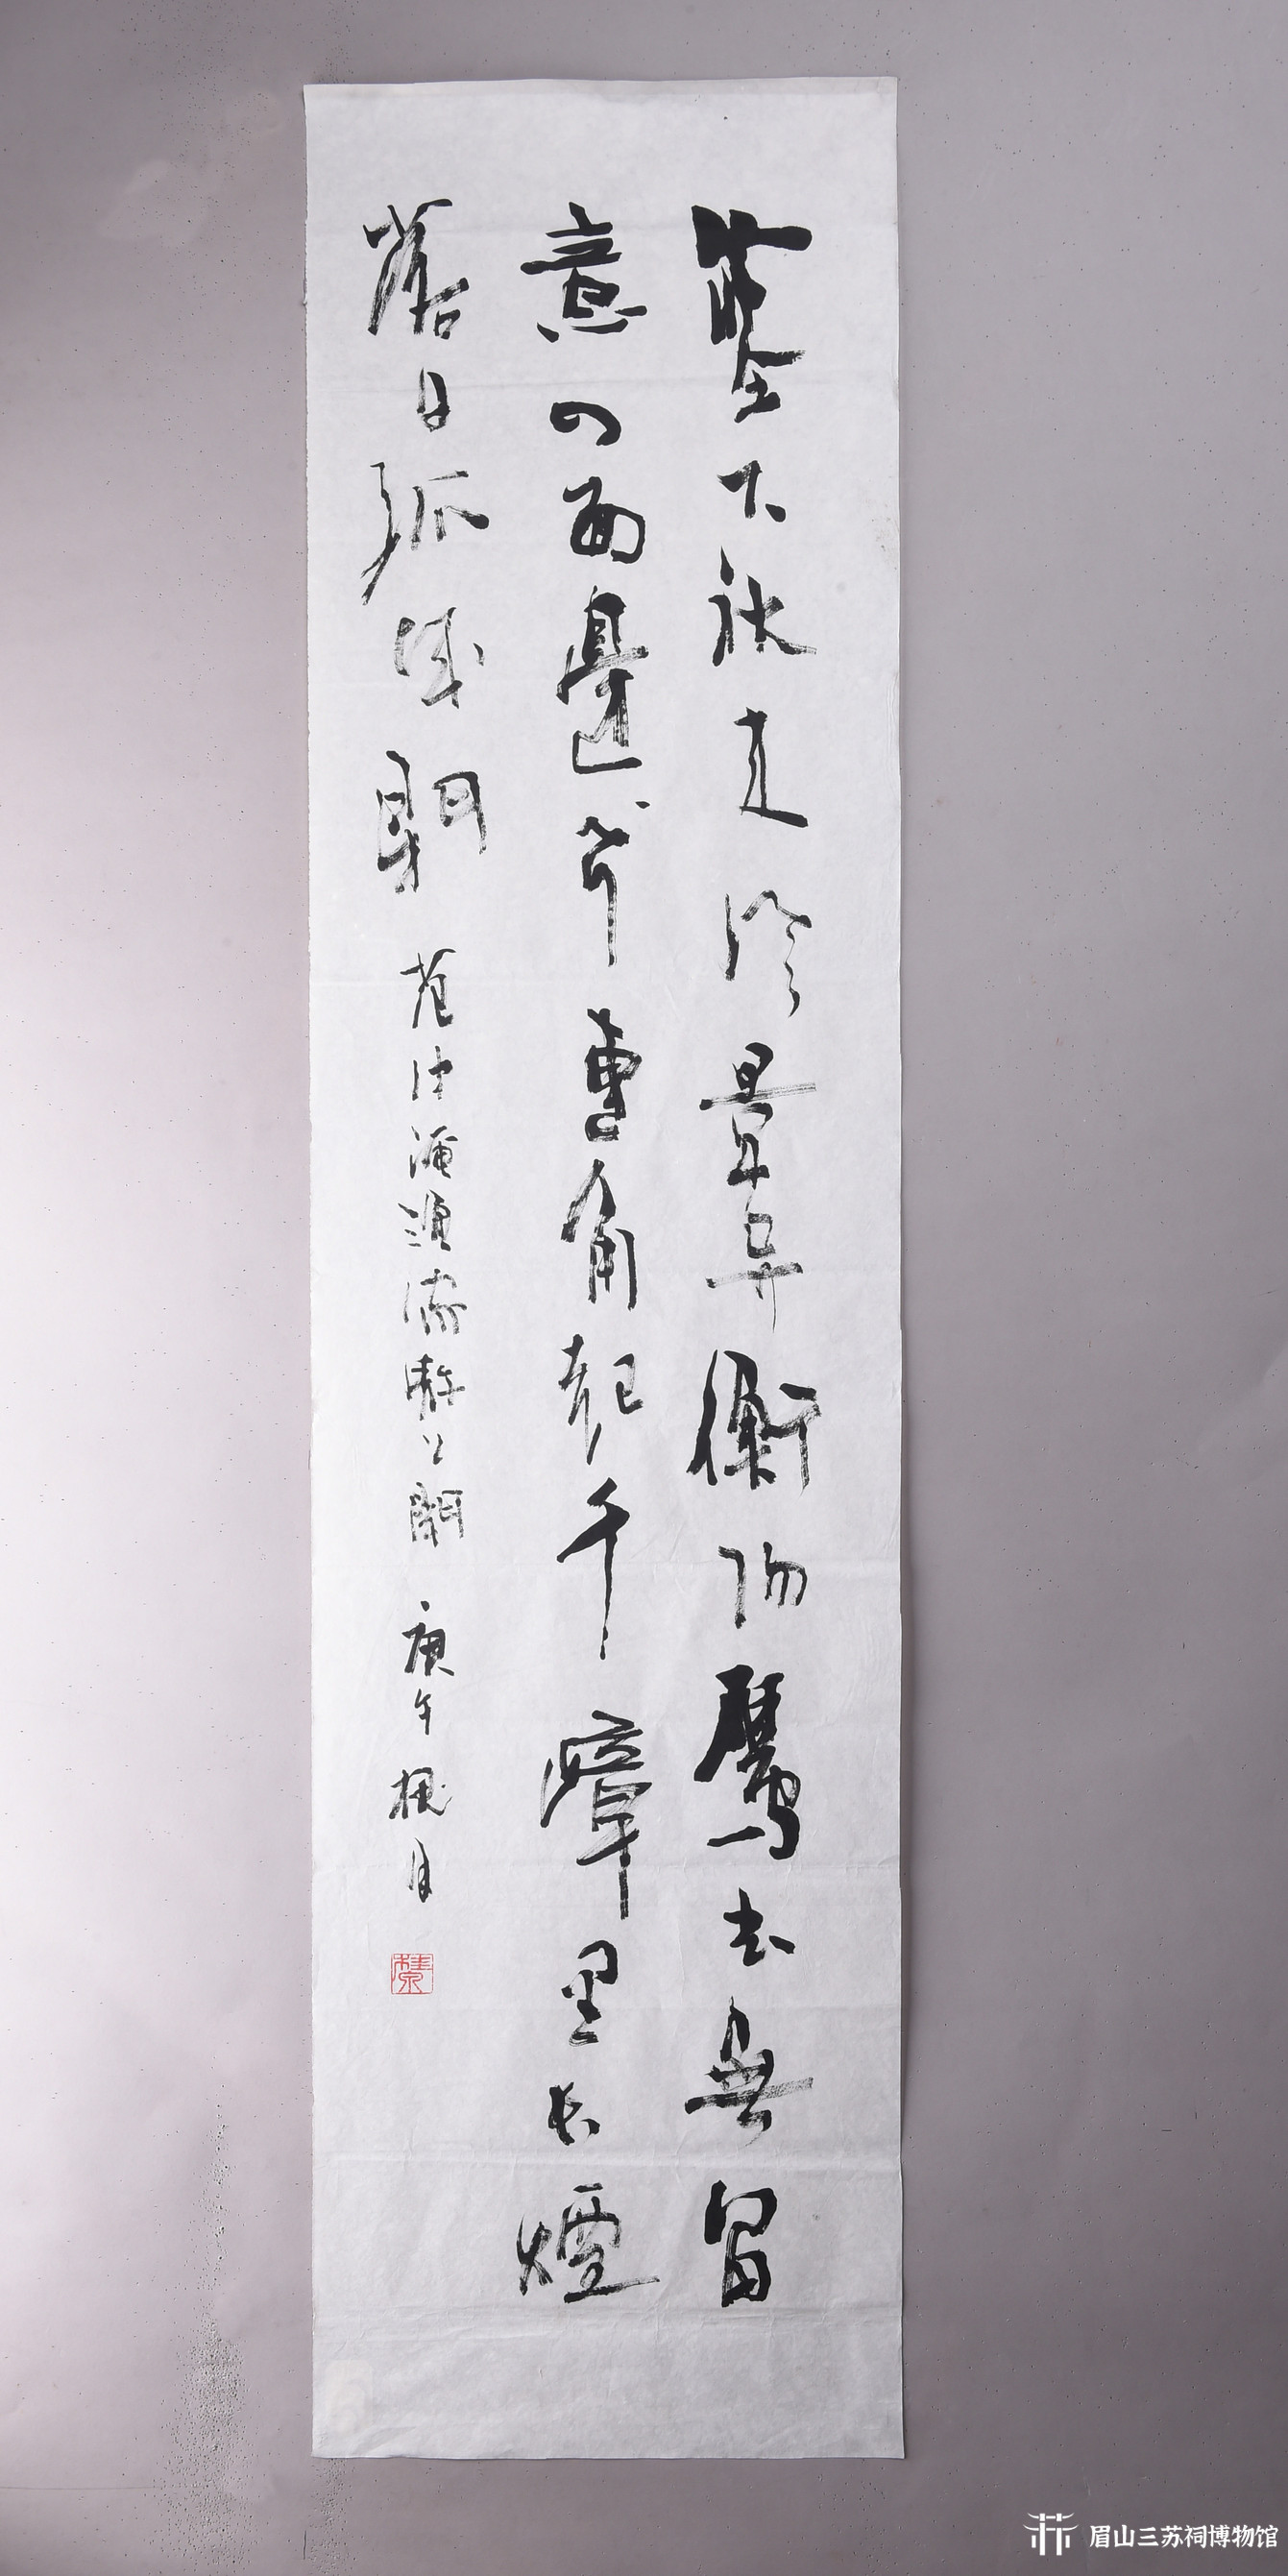 塞下秋来风景异衡阳鴈去無留
意四面邊声連角起千嶂里长煙
落日孤城閉 范仲淹漁家傲上闋 庚午槐月
眉山三苏祠博物馆